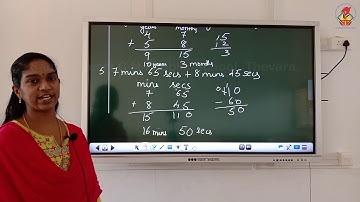 years months
4 7 15
+ 5 8 12
9 15 3
10 years 3 months
5. 7 mins 65 secs + 8 mins 45 secs
mins secs
7 65 110
+ 8 45 - 60
15 110 50
16 mins 50 secs